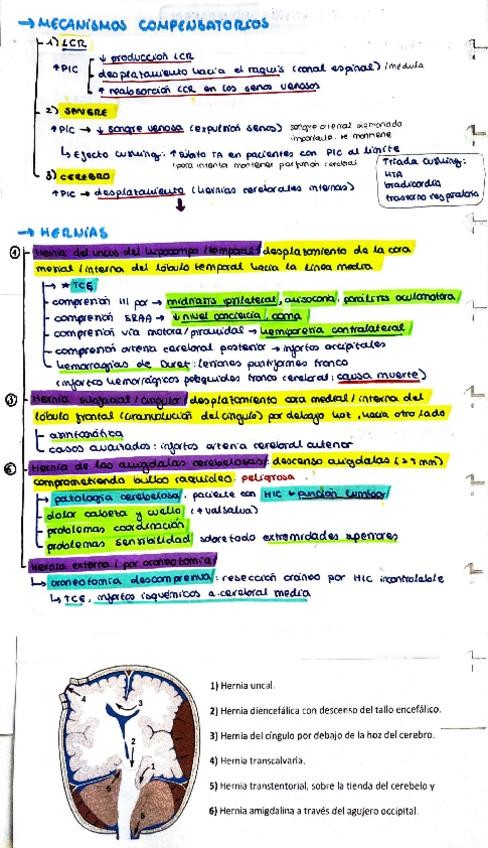 → MECANISMOS COMPENSATORIOS
1) LCR
↓ producción LCR
↑PIC desplazamiento hacia el raquis (canal espinal) / médula
↑ reabsorción LCR en los senos venosos
2) SANGRE
↑PIC → ↓ sangre venosa (expulsión senos) sangre arterial demasiado
importante, se mantiene
↳ Efecto cushing: ↑ súbito TA en pacientes con PIC al límite
(para intentar mantener perfusión cerebral)
Triada cushing:
HTA
bradicardia
trastorno respiratorio
3) CEREBRO
↑PIC → desplazamiento (hernias cerebrales internas)
→ HERNIAS
① Hernia del uncus del hipocampo / temporal / desplazamiento de la cara
medial / interna del lóbulo temporal hacia la línea media
→ * TCE
compresión III par → midriasis ipsilateral, anisocoria, parálisis oculomotora
compresión SRAA → ↓ nivel conciencia, coma
compresión vía motora / piramidal → hemiparesia contralateral
compresión arteria cerebral posterior → infartos occipitales
hemorragias de Duret: lesiones puntiformes tronco
(infartos hemorrágicos pequeñitos tronco cerebral: causa muerte)
③ Hernia subfacial / cingular / desplazamiento cara medial / interna del
lóbulo frontal (circunvolución del cíngulo) por debajo hoz, hacia otro lado
asintomática
casos avanzados: infartos arteria cerebral anterior
⑥ Hernia de las amígdalas cerebelosas: descenso amígdalas (>5 mm)
comprometiendo bulbo raquídeo: peligrosa
→ patología cerebelosa, paciente con HIC + punción lumbar
dolor cabeza y cuello (↑ valsalva)
problemas coordinación
problemas sensibilidad sobretodo extremidades superiores
Hernia externa / por craneotomía /
↳ craneotomía descompresiva: resección cráneo por HIC incontrolable
↳ TCE, infartos isquémicos a. cerebral media
1) Hernia uncal.
2) Hernia diencefálica con descenso del tallo encefálico.
3) Hernia del cíngulo por debajo de la hoz del cerebro.
4) Hernia transcalvaria.
5) Hernia transtentorial, sobre la tienda del cerebelo y
6) Hernia amigdalina a través del agujero occipital.
4
3
2
1
5
6